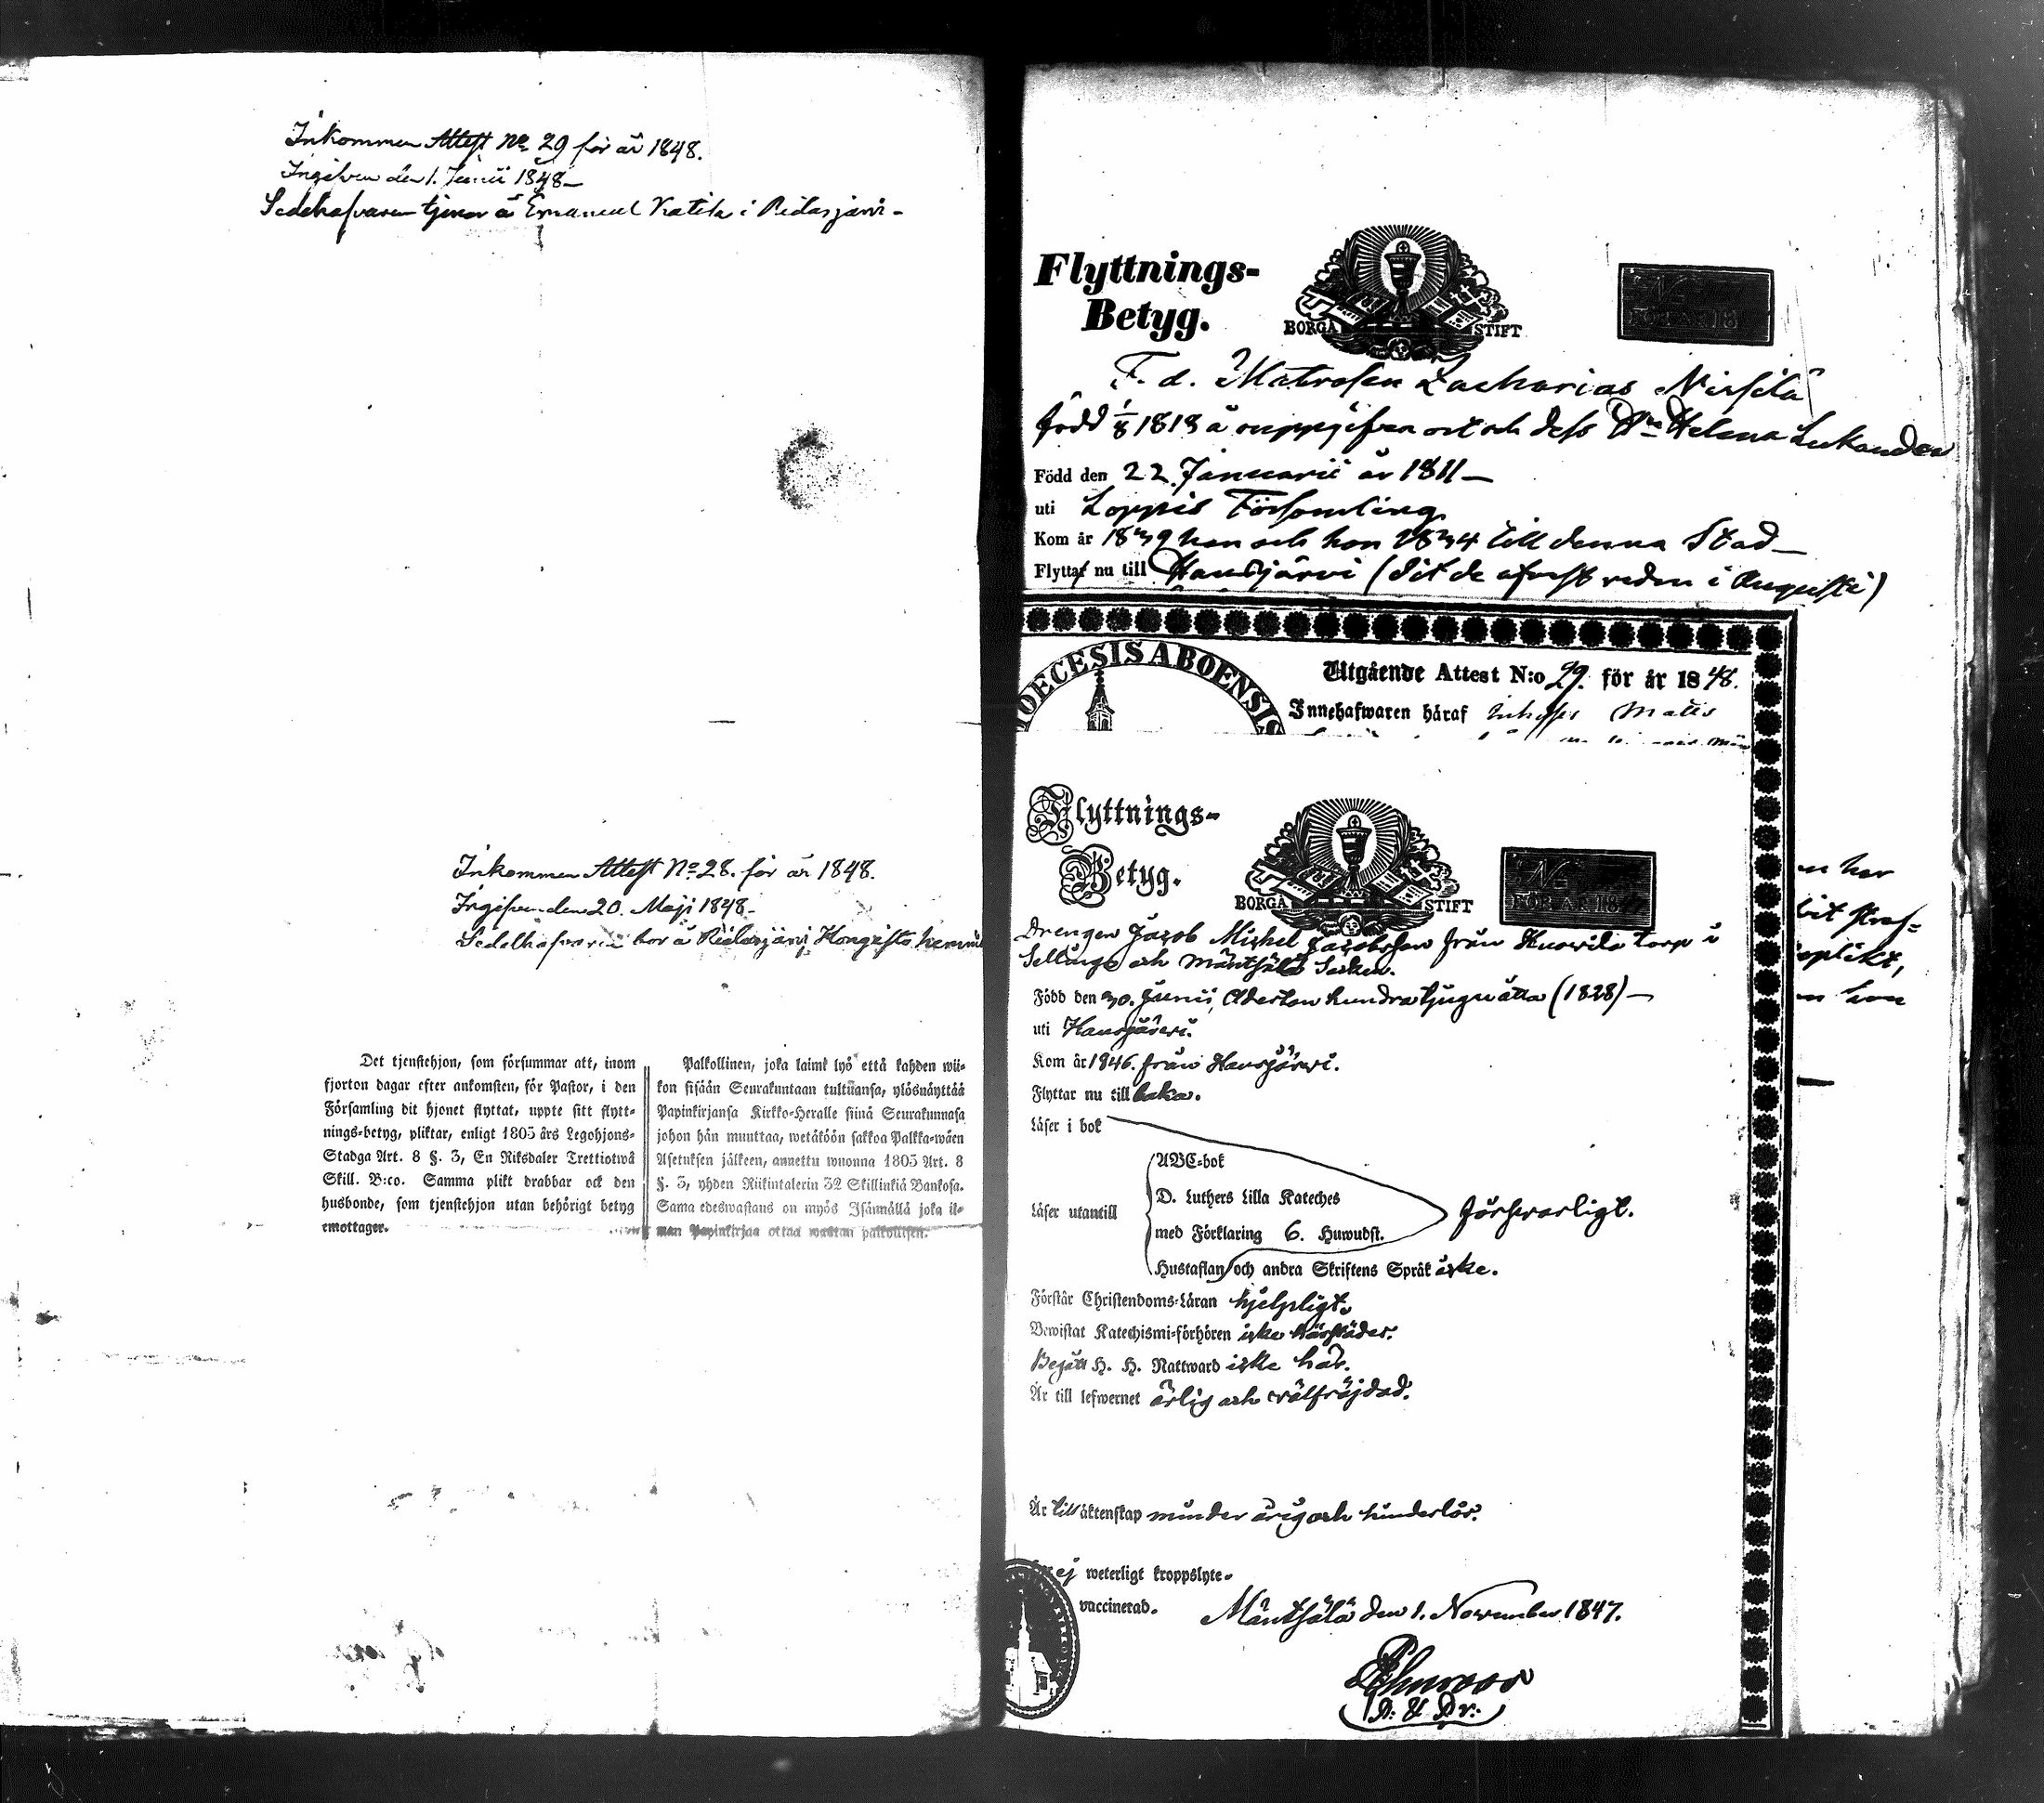 Inkommen Attest No 29 för år 1848.
Ingifven den 1. Junii 1848 –
Sedelhafvaren tjenar å Emanuel Katila i Ridasjärvi –
Inkommen Attest No 28. för år 1848.
Ingifven den 20. Maji 1848 –
Sedelhafvaren bor å Ridasjärvi Hongisto hemm
Det tjenstehjon, som försummar att, inom
fjorton dagar efter ankomsten, för Pastor, i den
Församling dit hjonet flyttat, uppte sitt flytt-
nings-betyg, pliktar, enligt 1805 års Legohjons-
Stadga Art. 8 §. 3, En Riksdaler Trettiotwå
Skill. B:co. Samma plikt drabbar ock den
husbonde, som tjenstehjon utan behörigt betyg
emottager.
Palkollinen, joka laimi lyö että kahden wii-
kon sisään Seurakuntaan tultuansa, ylösnäyttää
Papinkirjansa Kirkko-Heralle siinä Seurakunnasa
johon hän muuttaa, wetäköön sakkoa Palkka-wäen
Asetuksen jälkeen, annettu wuonna 1805 Art. 8
§. 3, yhden Riikintalerin 32 Skillinkiä Bankosa.
Sama edeswastaus on myös Isännällä joka il-
man Papinkirjaa ottaa wastan palkollisen.
Flyttnings-
Betyg.
BORGÅ STIFT
No
FÖR ÅR 18
F. d. Matrosen Zacharias Nirsilä
född 1/8 1813 å ouppgifven ort och dess H:u Helena Lukander
Född den 22. Januarii år 1811 –
uti Loppis Församling
Kom år 1839 han och hon 1834 till denna Stad –
Flyttar nu till Hausjärvi (dit de afrest redan i Augusti)
DIOECESIS ABOENSIS
Utgående Attest N:o 29. för år 1848.
Innehafwaren häraf Inhyses Matts
Flyttnings-
Betyg.
BORGÅ STIFT
No
FÖR ÅR 1847
Drengen Jacob Michel Jacobsson från torp i
Sellinge och Mäntsälä Socken.
Född den 30. Junii, Aderton hundra tjugu åtta (1828) –
uti Hausjärvi.
Kom år 1846. från Hausjärvi.
Flyttar nu till baka.
Läser i bok
Läser utantill
ABC-bok
D. Luthers Lilla Kateches
med Förklaring 6. Huwudst.
Hustaflan och andra Skriftens Språk icke.
försvarligt.
Förstår Christendoms-Läran hjelpligt.
Bewistat Katechismi-förhören icke härstädes.
Begått H. H. Nattward icke här.
Är till lefwernet ärlig och välfräjdad.
Är till äktenskap minder årig och hinderlös.
ej weterligt kroppslyte.
vaccinerad.
Mäntsälä den 1. November 1847.
n har